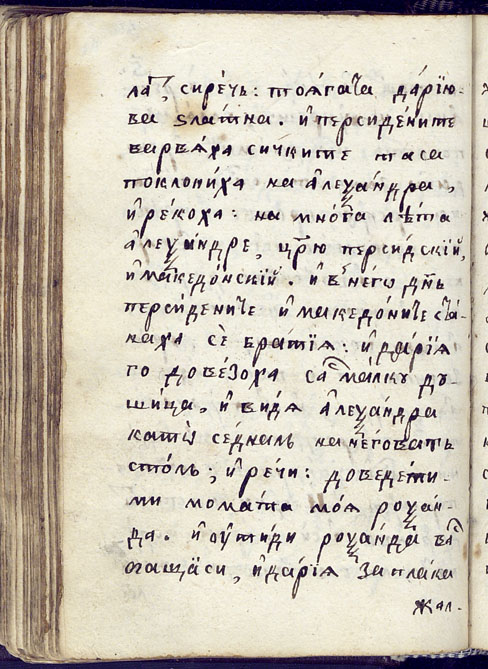 лаⷮ, сирѣчь: тоѧгаⷮа да́рїю-
ва ѕла́тна. и҆ персиде́ните
варва́ха сичките таса
поклони́ха на а҆леѯа́ндра,
и҆ ре́коха: на мно́га лѣ́та
а҆леѯа́ндре, цр҃ю персиⷣскїй,
и҆ макеⷣо́нскїй. и҆ в него днь
персиде́ниⷮе и҆ македо́ниⷮе ста́-
наха се братїѧ: и҆ да́рїѧ
го дове́зоха саⷭ ма́лку ду-
ши́ца, и҆ ви́дѧ а҆леѯа́ндра
като̀ се́дналь на не́говать
сто́ль; и҆ ре́чи: доведе́ти-
ми мома́та моѧ роѯа́н-
да. и҆ ѹ҆ти́ди роѯа́нда ваⷭ
ѻ҆таща́си, и҆ да́рїѧ заплака
жал-